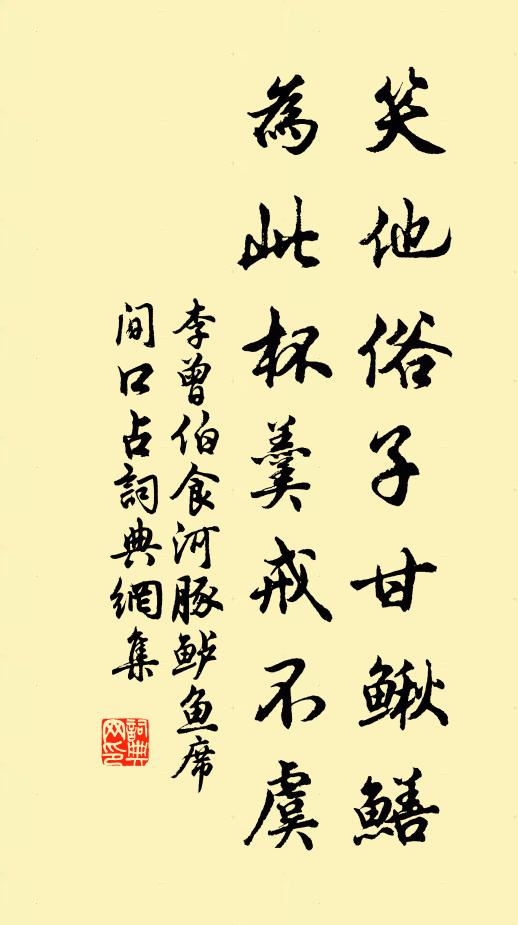 笑他俗子甘鳅鱔
為此杯羹戒不虞
李曾伯食河豚鲈鱼席
间口占詞典網集
詞典
网印